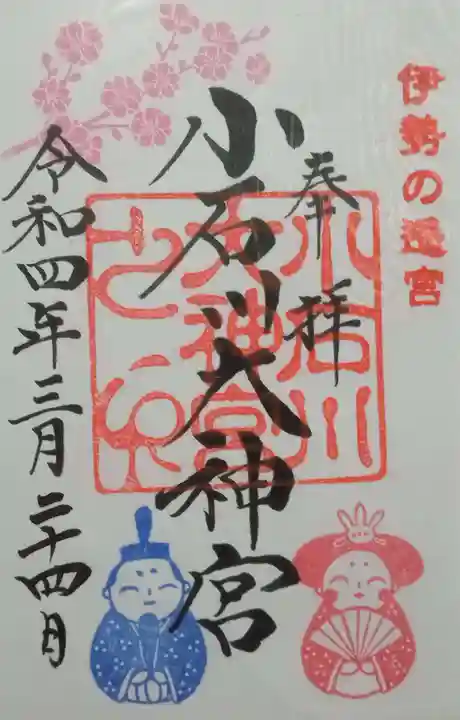 伊勢の遙宮
奉拝
小石川
大神宮
之印
小石川大神宮
令和四年三月二十四日